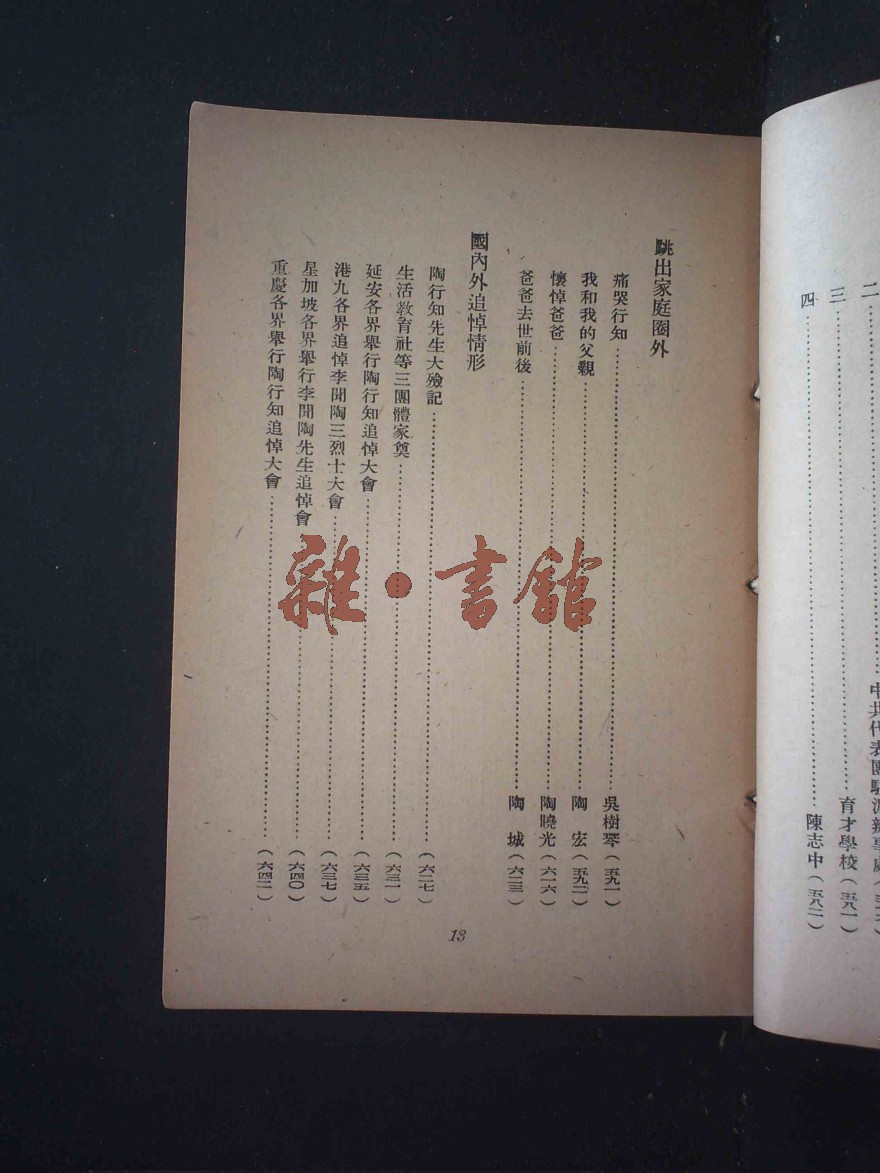 二……中共代表團駐滬辦事處
三……育才學校(五八一)
四……陳志中(五八二)
跳出家庭圈外
痛哭行知……吳樹琴(五九一)
我和我的父親……陶 宏(五九二)
懷悼爸爸……陶曉光(六一六)
爸爸去世前後……陶 城(六二三)
國內外追悼情形
陶行知先生大殮記……(六二七)
生活教育社等三團體家奠……(六三一)
延安各界舉行陶行知追悼大會……(六三五)
港九各界追悼李聞陶三烈士大會……(六三七)
星加坡各界舉行李聞陶先生追悼會……(六四〇)
重慶各界舉行陶行知追悼大會……(六四二)
13
雜·書館